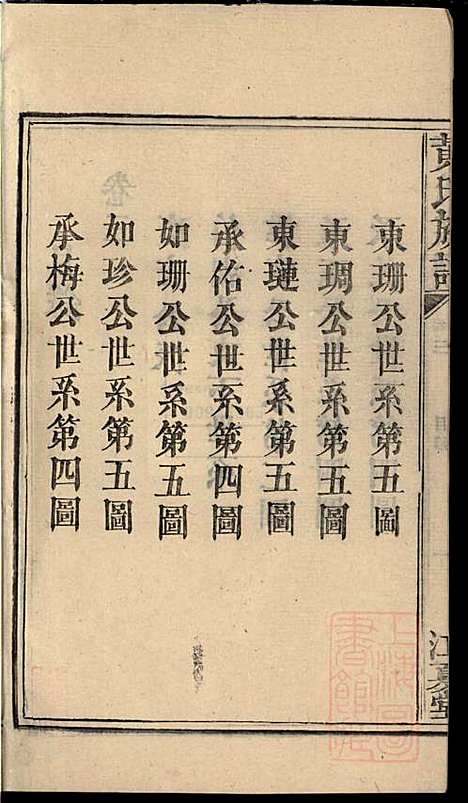 黃氏族譜
江夏堂
東珊公世系第五圖
東琱公世系第五圖
東璉公世系第五圖
承佑公世系第四圖
如珊公世系第五圖
如珍公世系第五圖
承梅公世系第四圖